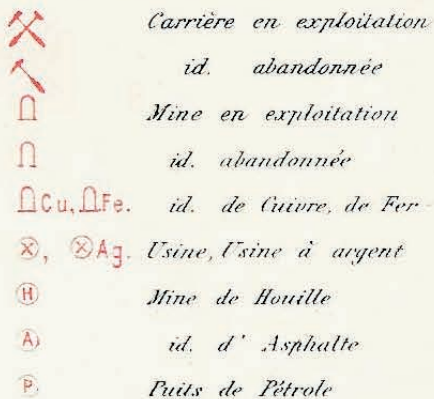 Carrière en exploitation
id. abandonnée
Mine en exploitation
id. abandonnée
Cu, Fe. id. de Cuivre, de Fer
, Ag. Usine, Usine à argent
H Mine de Houille
A id. d' Asphalte
P Puits de Pétrole